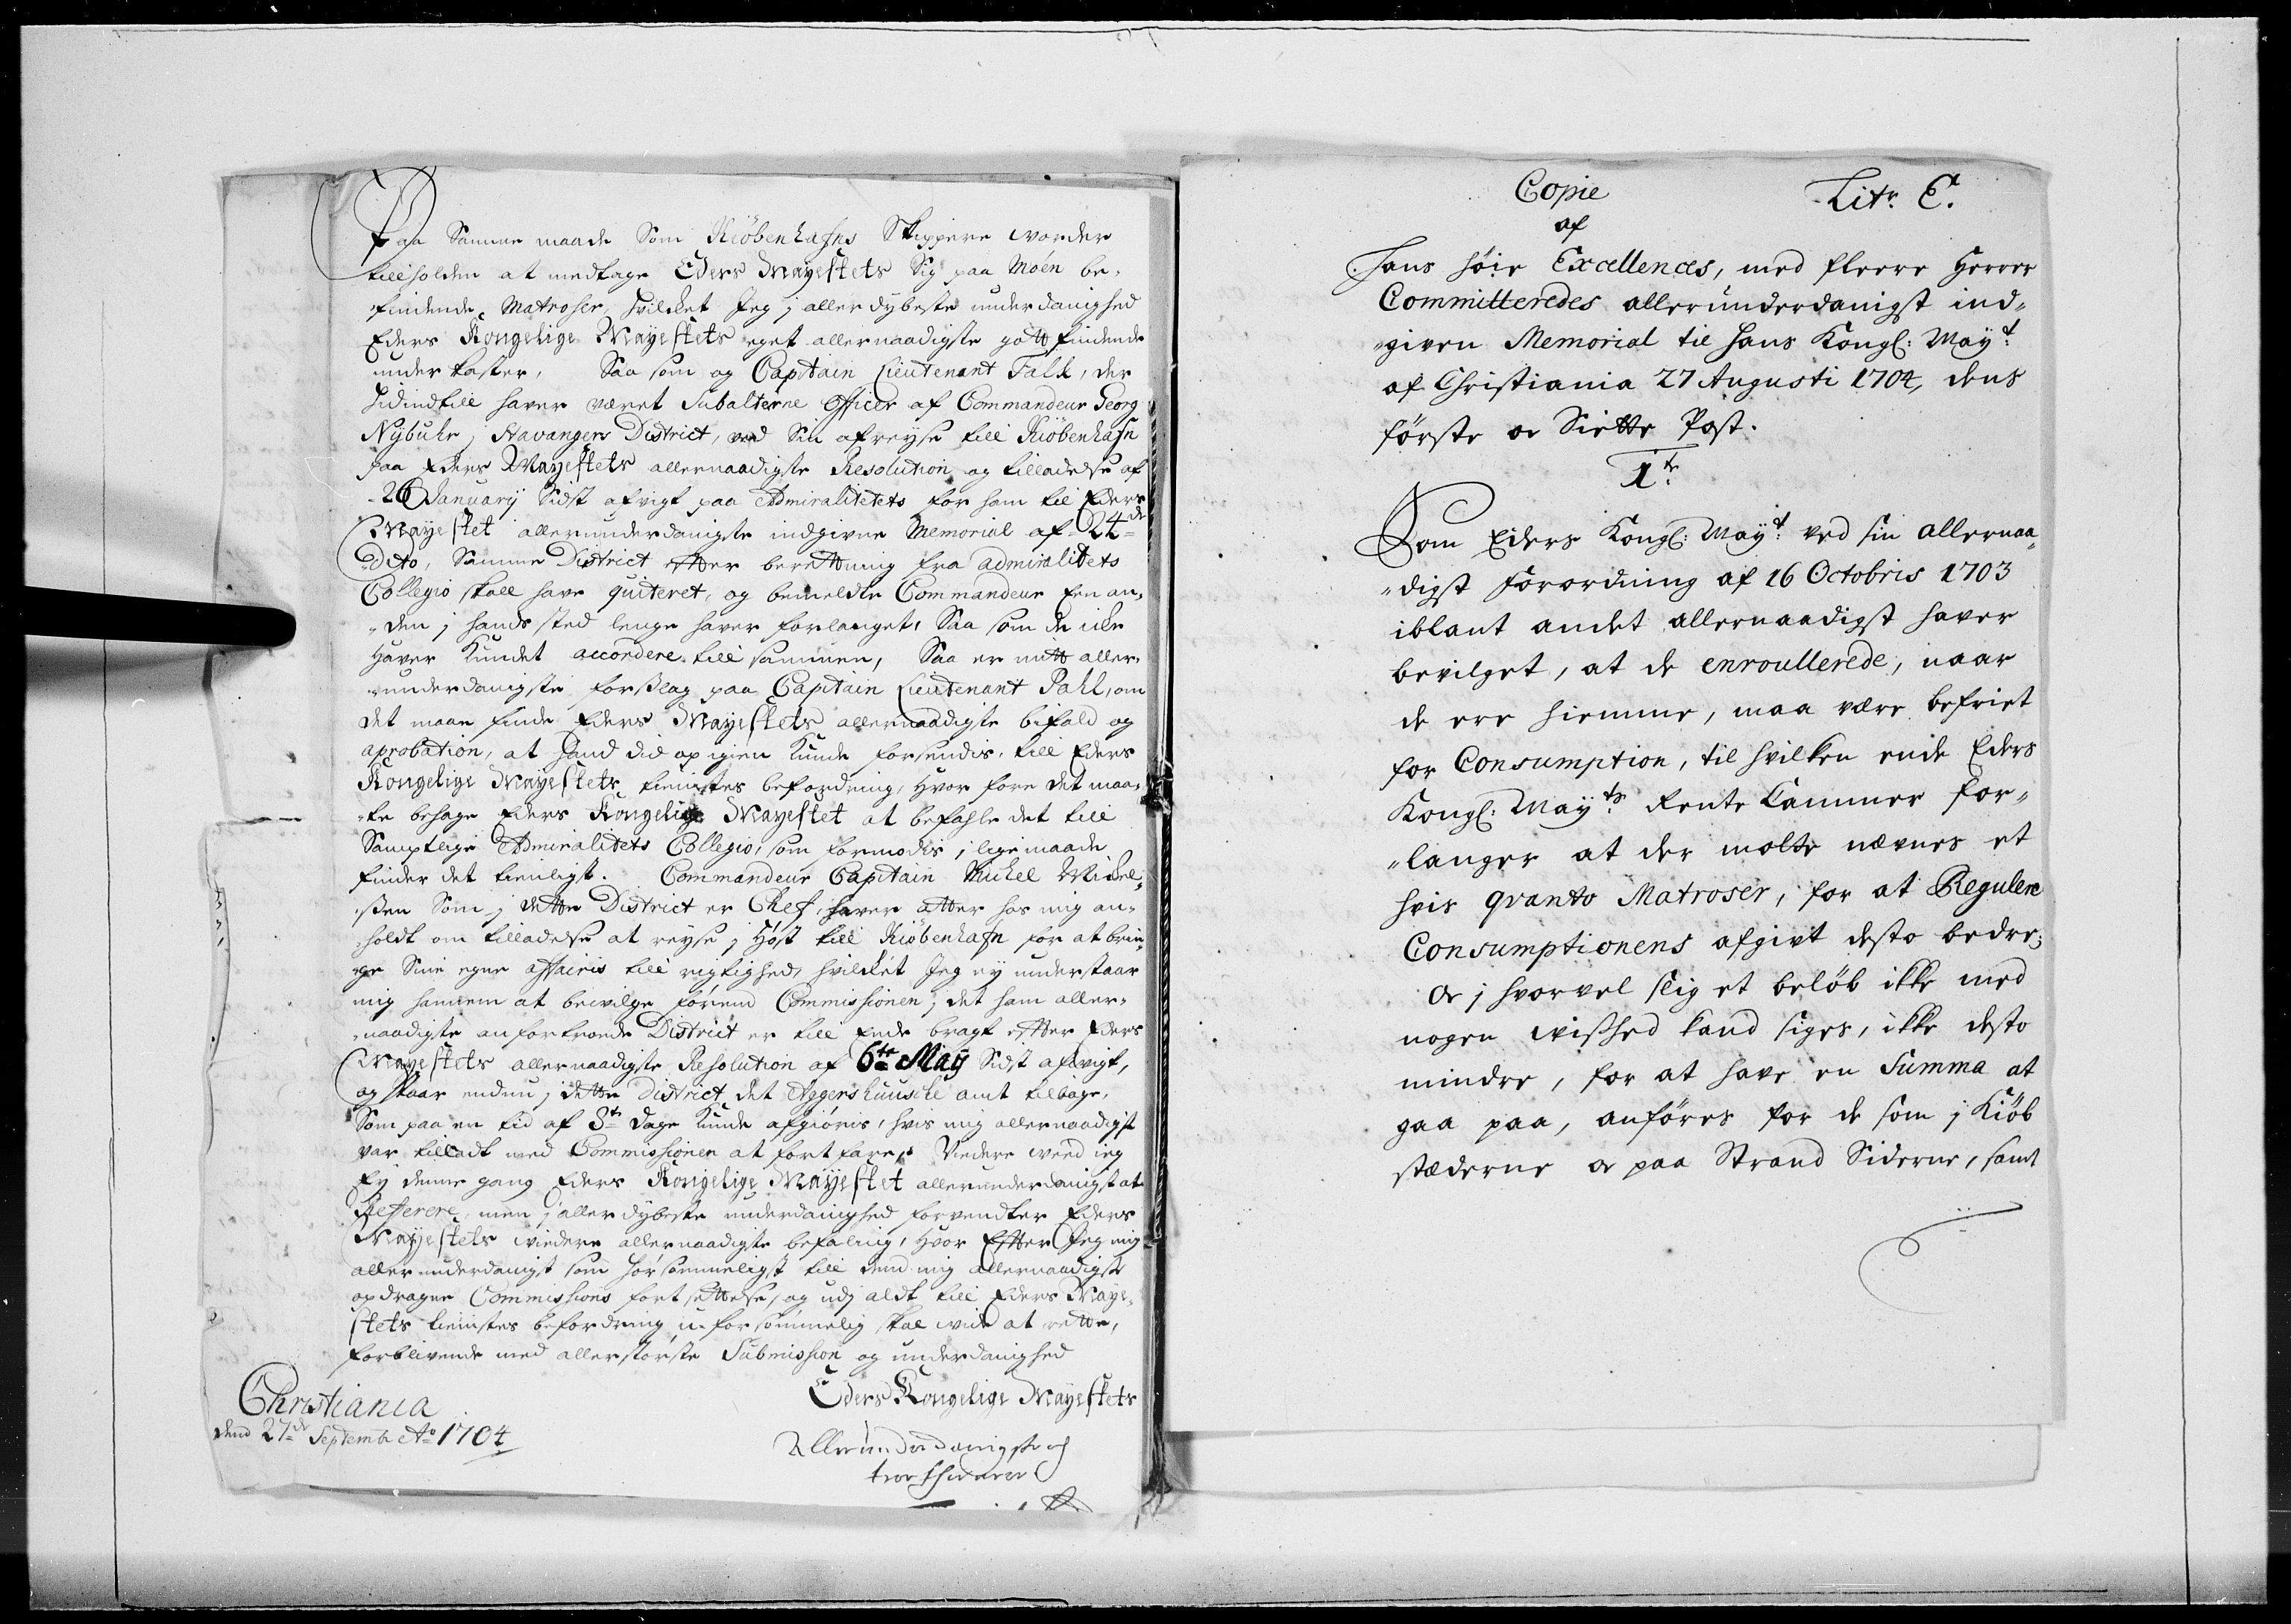 Paa Samme maade som Kiöbenhafns Skippere worder
tilholden at medtage Eders Mayestets Sig paa Möen be-
findende Matroser, hvilcket Jeg j aller dybeste underdanighed
Eders Kongelige Mayestets eget allernaadigste gott findende
underkaster, Saa som og Capitain Lieutenant Falk, der
hidindtill haver været Subalterne Officer af Commandeur Georg
Nybuhr j Stavangers District, ved Sin afreyse till Kiöbenhafn
paa Eders Mayestets allernaadigste Resolution og tilladelse af
26 January Sidst afvigt paa Admiralitetets for ham til Eders
Mayestet allerunderdanigste indgivne Memorial af 24de
dito, Samme District efter berettning fra admiralitets
Collegio skall have quiteret, og bemeldte Commandeur Een an-
den j hands sted lenge haver forlanget, Saa som de icke
haver kundet accordere till sammen, Saa er mitt aller-
underdanigste forslag paa Capitain Lieutenant Pahl, om
det maa finde Eders Mayestets allernaadigste bifald og
aprobation, at hand did op igien kunde forsendis, till Eders
Kongelige Mayestets tienistes befordring, hvor fore det maa-
te behage Eders Kongelige Mayestet at befahle det till
Samptlige Admiralitets Collegio, som formodis j lige maade
finder det tienligt. Commandeur Capitain Michel Mickel-
sen Som j dette District er Chef, haver atter hos mig an-
holdt om tilladelse at reyse j Höst till Kiöbenhafn for at brin-
ge Sine egne affairis till rigtighed, hvilcket Jeg ey understaar
mig hannem at bevilge förend Commissionen j det ham aller-
naadigste anfortroede District er till Ende bragt efter Eders
Mayestets allernaadigste Resolution af 6te May Sidst afvigt,
og staar endnu j dette District det Aggershuusche amt tilbage,
Som paa en tid af 8te dage kunde afgiöris, hvis mig allernaadigst
var tilladt med Commissionen at fortfare. Viedere weed ieg
Ey denne gang Eders Kongelige Mayestet allerunderdanigst at
Refferere, men j aller dybeste underdanighed forvendter Eders
Mayestets viedere allernaadigste befaling, hvor Efter Jeg mig
allerunderdanigst som hörsommeligst till dend mig allernaadigst
opdragne Commissions fortsettelse, og udj aldt till Eders Maye-
stets tienistes befordring uforsömmelig skal vide at rette,
forblivende med allerstörste Submission og underdanighed
Eders Kongelige Mayestets
Christiania
dend 27de Septemb Ao 1704
Allerunderdanigste og
troe thienere
Copie Litr. C.
af
Hans höie Excellences, med fleere Herrer
Committeredes allerunderdanigst ind-
given Memorial til Hans Kongl: Mayt
af Christiania 27 Augusti 1704, dens
förste oc Siette Post.
1te
Som Eders Kongl: Mayt ved sin allernaa-
digst Forordning af 16 Octobris 1703
iblant andet allernaadigst haver
bevilget, at de enroullerede, naar
de ere hiemme, maa være befriet
for Consumption, til hvilken ende Eders
Kongl: Mayts Rente Kammer for-
langer at der motte nævnes et
hvis qvanto Matroser, for at Regulere
Consumptionens afgivt desto bedre;
Oc j hvorvel slig et beløb ikke med
nogen wished kand siges, ikke desto
mindre, for at have en Summa at
gaa paa, anföres for de som j Kiöb
stæderne oc paa Strand Siderne, samt